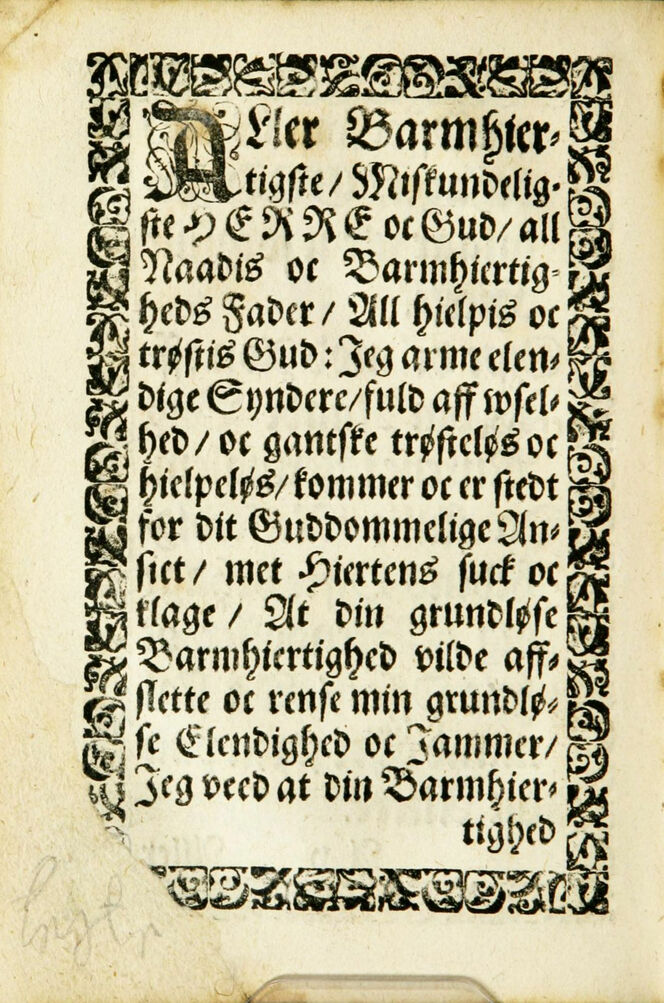 ALler Barmhier⸗
tigste / Miskundelig⸗
ste HERRE oc Gud / all
Naadis oc Barmhiertig⸗
heds Fader / All hielpis oc
trøstis Gud : Jeg arme elen⸗
dige Syndere / fuld aff wsel⸗
hed / oc gantske trøsteløs oc
hielpeløs / kommer oc er stedt
for dit Guddommelige An⸗
sict / met Hiertens suck oc
klage / At din grundløse
Barmhiertighed vilde aff⸗
slette oc rense min grundlø⸗
se Elendighed oc Jammer /
Jeg veed at din Barmhier⸗
tighed